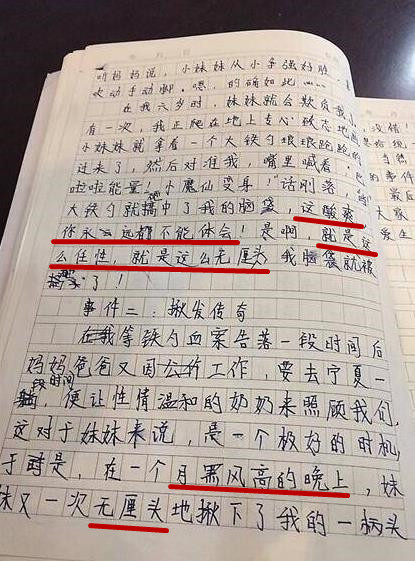 听妈妈说，小妹妹从小争强好胜，喜
欢动手动脚。嗯，的确如此……
在我六岁时，妹妹就会欺负我了
有一次，我正爬在地上专心致志地画
小妹妹就拿着一个大铁勺踉踉跄跄的
过来了，然后对准我，嘴里喊着，
啦啦能量！小魔仙变身！"话刚落，
大铁勺就捶中了我的脑袋，这酸爽
你永远都不能体会！是啊，就是这
么任性，就是这么无厘头，我脑袋就被
了！
事件二：揪发传奇
在我等铁勺血案告落一段时间后
妈妈爸爸又因公价工作，要去宁夏一
段时间，便让性情温和的奶奶来照顾我们，
这对于妹妹来说，是一个极好的时机
于是，在一个月黑风高的晚上，妹
妹又一次无厘头地揪下了我的一柄头